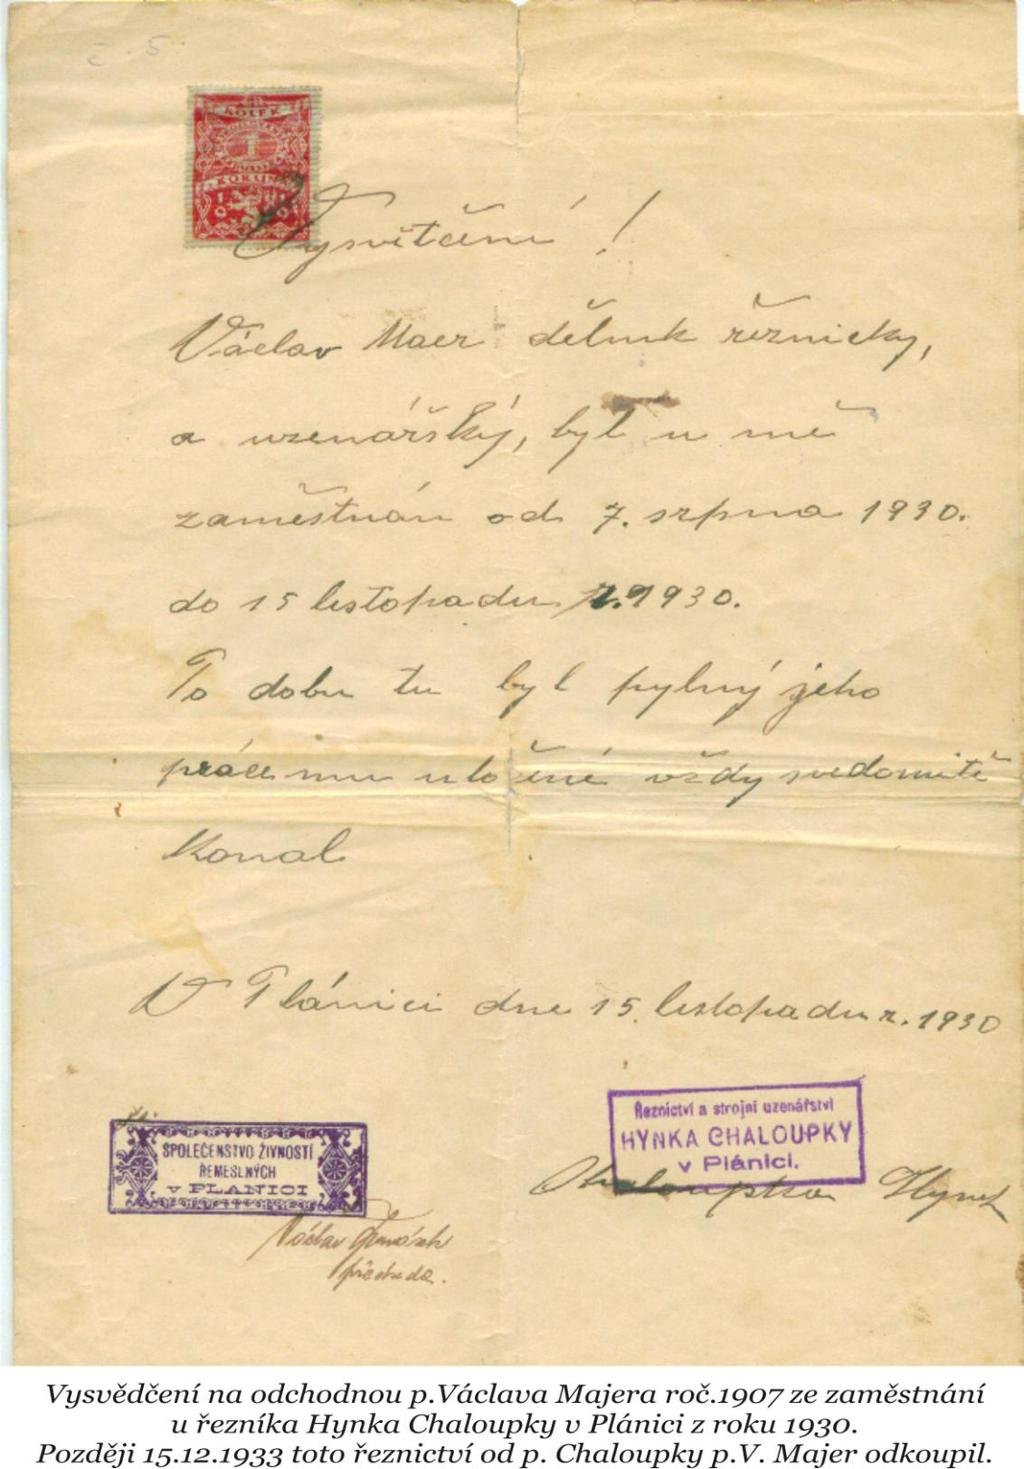 č. 5.
KOLEK
1
KORUNA
Vysvitčení !
Václav Maer dělnik řeznicky,
a uzenářský, byl u mě
zaměstnán od 7. srpna 1930.
do 15 listopadu r. 1930.
To dobu tu byl pylný jeho
práce mu uložené vždy svedomitě
Konal
V Plánici dne 15. listopadu r. 1930
Řeznictví a strojní uzenářství
HYNKA CHALOUPKY
v Plánici.
Chaloupka Hynek
SPOLEČENSTVO ŽIVNOSTÍ
ŘEMESLNÝCH
v PLANICI
Václav
předseda.
Vysvědčení na odchodnou p.Václava Majera roč.1907 ze zaměstnání
u řezníka Hynka Chaloupky v Plánici z roku 1930.
Později 15.12.1933 toto řeznictví od p. Chaloupky p.V. Majer odkoupil.